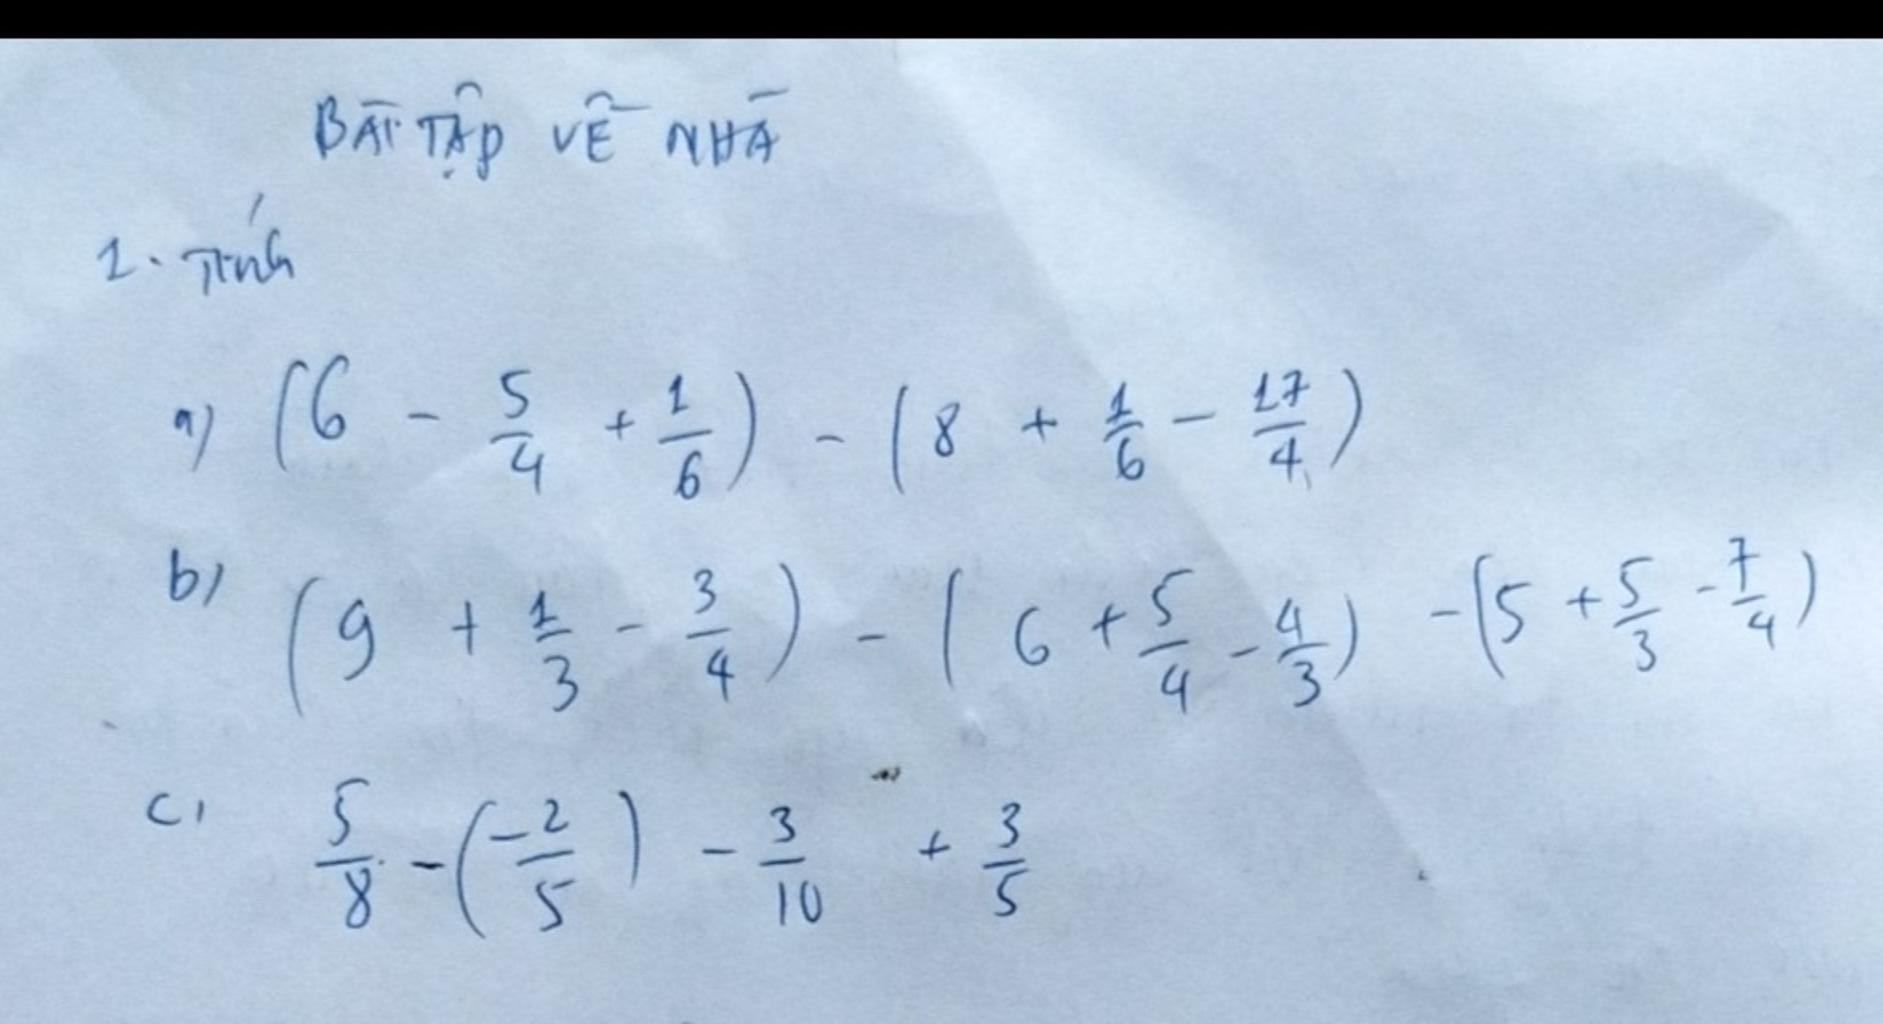 BÀI TẬP VỀ NHÀ
1. Tính
a) (6 - 5/4 + 1/6) - (8 + 1/6 - 17/4)
b) (9 + 1/3 - 3/4) - (6 + 5/4 - 4/3) - (5 + 5/3 - 7/4)
c) 5/8 - (-2/5) - 3/10 + 3/5